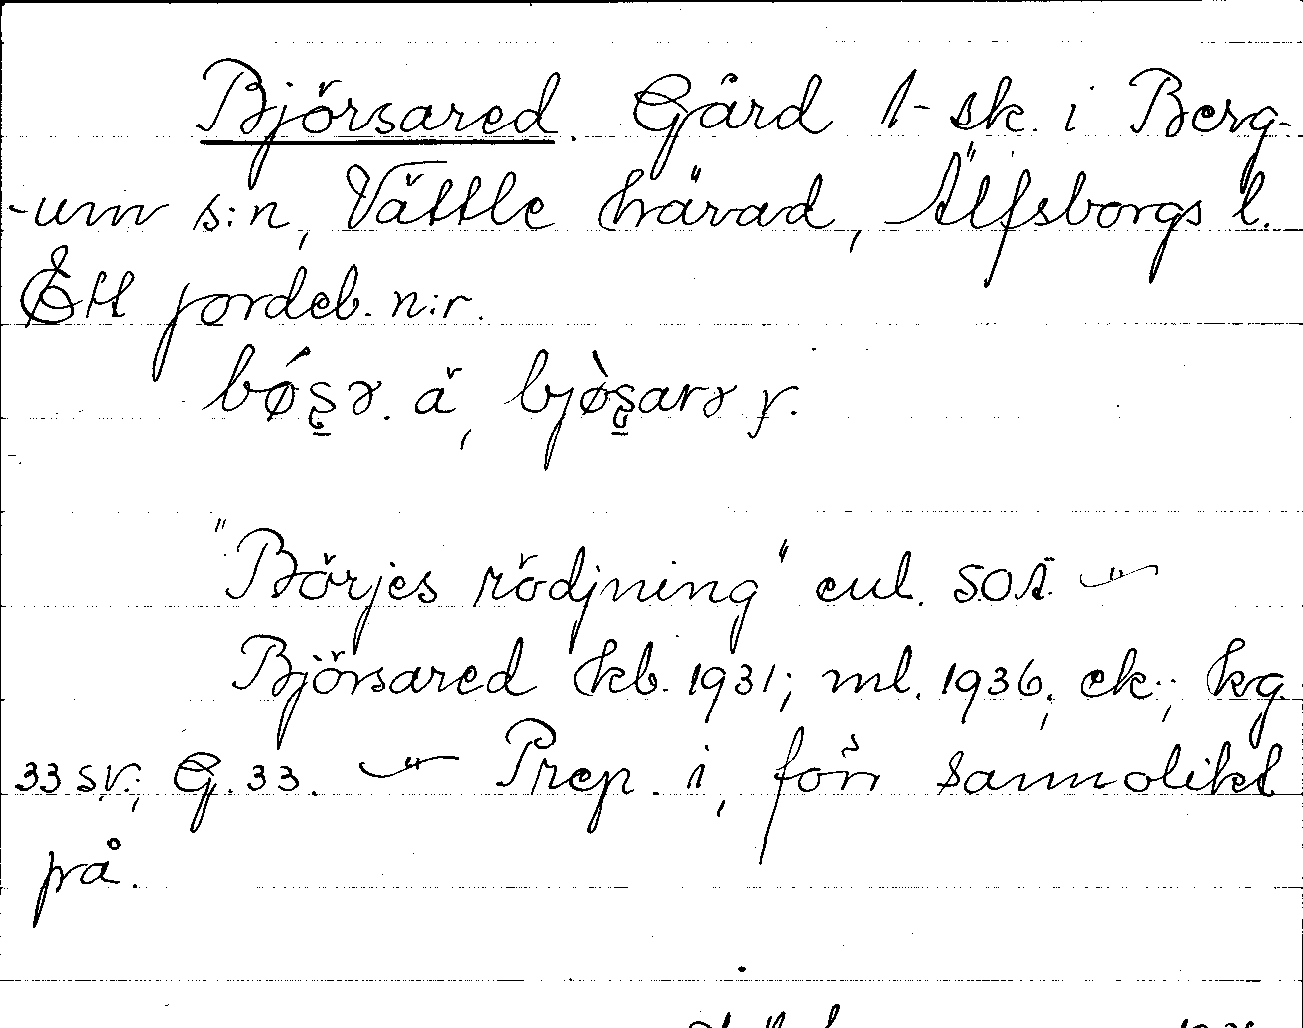 Björsared. Gård 1-sk. i Berg-
-um s:n, Vättle härad, Älfsborgs l.
Ett jordeb. n:r.
bǿʂə. ä, bjø̀ʂarə y.
"Börjes rödjning" enl. SOÄ. —"—
Björsared kb. 1931; ml. 1936; ek.; kg.
33 sv.; G. 33. —"— Prep. i, förr sannolikt
på.